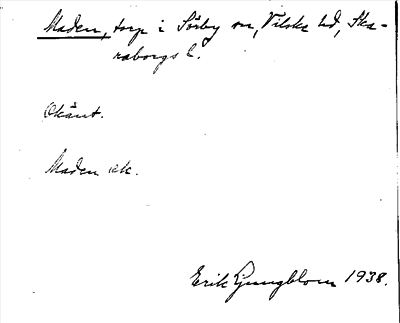 Maden, torp i Sörby sn, Vilske hd, Ska-
raborgs l.
Okänt.
Maden ek.
Erik Ljungblom 1938.